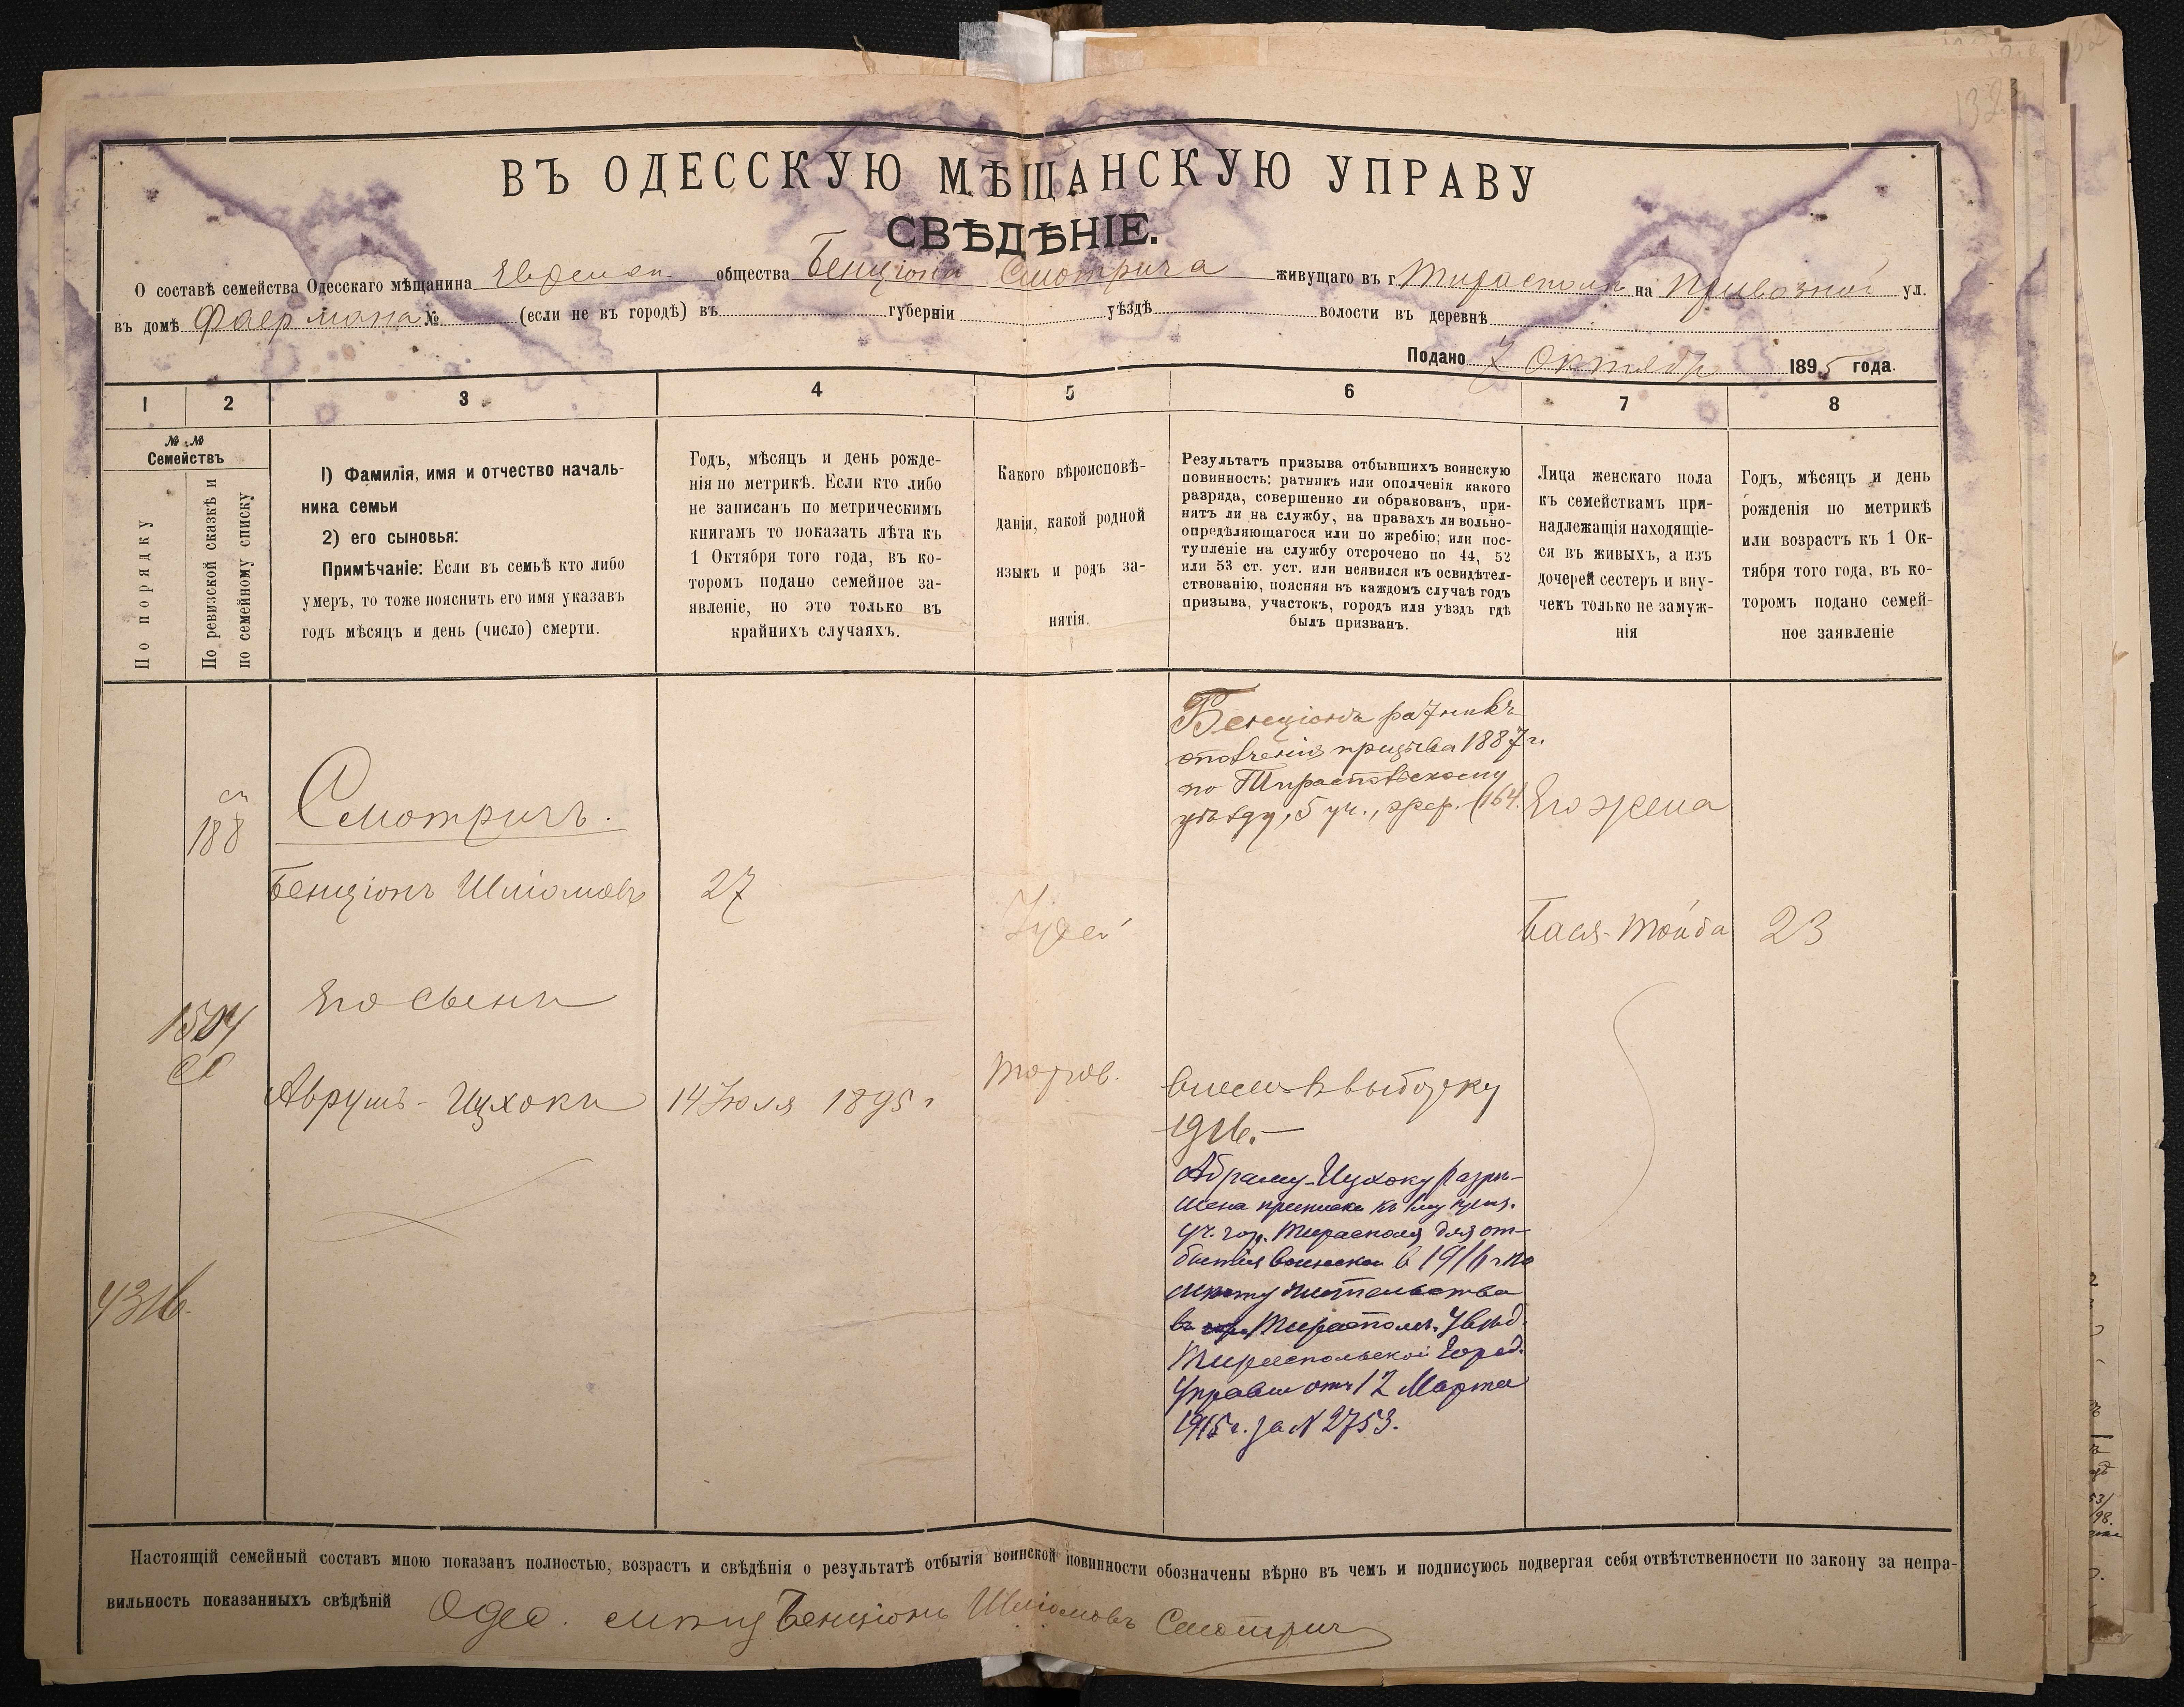 132
ВЪ ОДЕССКУЮ МѢЩАНСКУЮ УПРАВУ
СВѢДѢНІЕ.
О составѣ семейства Одесскаго мѣщанина общества Бенціона Смотрича живущаго въ г Тирасполѣ на Привозной ул.
въ домѣ Фаермана № (если не въ городѣ) въ губерніи уѣздѣ волости въ деревнѣ
Подано 7 Октября 1895 года.
1 2 3 4 5 6 7 8
№ № Семействъ
По порядку
По ревизской сказкѣ и по семейному списку
1) Фамилія, имя и отчество началь-
ника семьи
2) его сыновья:
Примѣчаніе: Если въ семьѣ кто либо
умеръ, то тоже пояснить его имя указавъ
годъ мѣсяцъ и день (число) смерти.
Годъ, мѣсяцъ и день рожде-
нія по метрикѣ. Если кто либо
не записанъ по метрическимъ
книгамъ то показать лѣта къ
1 Октября того года, въ ко-
торомъ подано семейное за-
явленіе, но это только въ
крайнихъ случаяхъ.
Какого вѣроисповѣ-
данія, какой родной
языкъ и родъ за-
нятія.
Результатъ призыва отбывшихъ воинскую
повинность: ратникъ или ополченія какого
разряда, совершенно ли обракованъ, при-
нятъ ли на службу, на правахъ ли вольно-
опредѣляющагося или по жребію; или пос-
тупленіе на службу отсрочено по 44, 52
или 53 ст. уст. или неявился къ освидѣтел-
ствованію, поясняя въ каждомъ случаѣ годъ
призыва, участокъ, городъ или уѣздъ гдѣ
былъ призванъ.
Лица женскаго пола
къ семействамъ при-
надлежащія находящіе-
ся въ живыхъ, а изъ
дочерей сестеръ и вну-
чекъ только не замуж-
нія
Годъ, мѣсяцъ и день
рожденія по метрикѣ
или возрастъ къ 1 Ок-
тября того года, въ ко-
торомъ подано семей-
ное заявленіе
Бенціонъ ратникъ
ополченія призыва 1887 г.
по Тираспольскому
уѣзду, 5 уч., жер. (164.
188
Смотричъ.
Его жена
Бенціонъ Шліомовъ
27
Іудей
Бася-Тойба
23
Его сынъ
1504
Аврумъ-Ицхокъ
14 Іюля 1895 г
торгов.
внесенъ в выборку
1916.—
Абраму-Ицхоку разрѣ-
шена приписка къ 1му приз.
уч. гор. Тирасполя для от-
бытія воинской в 1916 г по
мѣсту жительства
въ Тирасполѣ. Увѣд.
Тираспольской Город.
Управы отъ 12 Марта
1915 г. за N 2753.
4316.
Настоящій семейный составъ мною показанъ полностью, возрастъ и свѣдѣнія о результатѣ отбытія воинской повинности обозначены вѣрно въ чемъ и подписуюсь подвергая себя отвѣтственности по закону за непра-
вильность показанныхъ свѣдѣній Одес. мѣщ Бенціонъ Шліомовъ Смотричъ